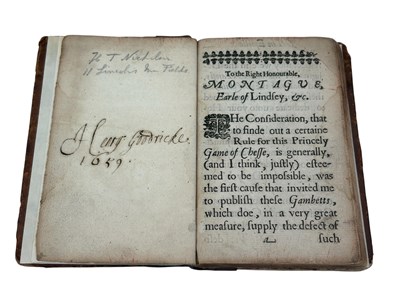 H T Nicholson
11 Lincolns Inn Fields
Henry Goodricke.
1659.
To the Right Honourable,
MONTAGUE,
Earle of Lindsey, &c.
THe Consideration, that
to finde out a certaine
Rule for this Princely
Game of Chesse, is generally,
(and I think, justly) estee-
med to be impossible, was
the first cause that invited me
to publish these Gambetts,
which doe, in a very great
measure, supply the defect of
a
such